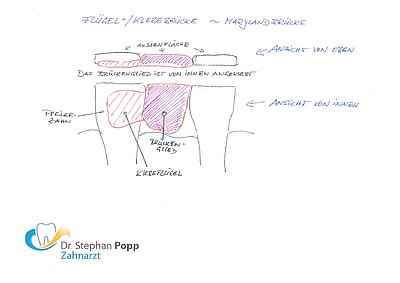 FLÜGEL-/KLEBEBRÜCKE ~ MARYLANDBRÜCKE
AUSSENFLÄCHE
ANSICHT VON OBEN
DAS BRÜCKENGLIED IST VON INNEN ANGEKLEBT
ANSICHT VON INNEN
PFEILER-
ZAHN
BRÜCKEN-
GLIED
KLEBEFLÜGEL
Dr. Stephan Popp
Zahnarzt